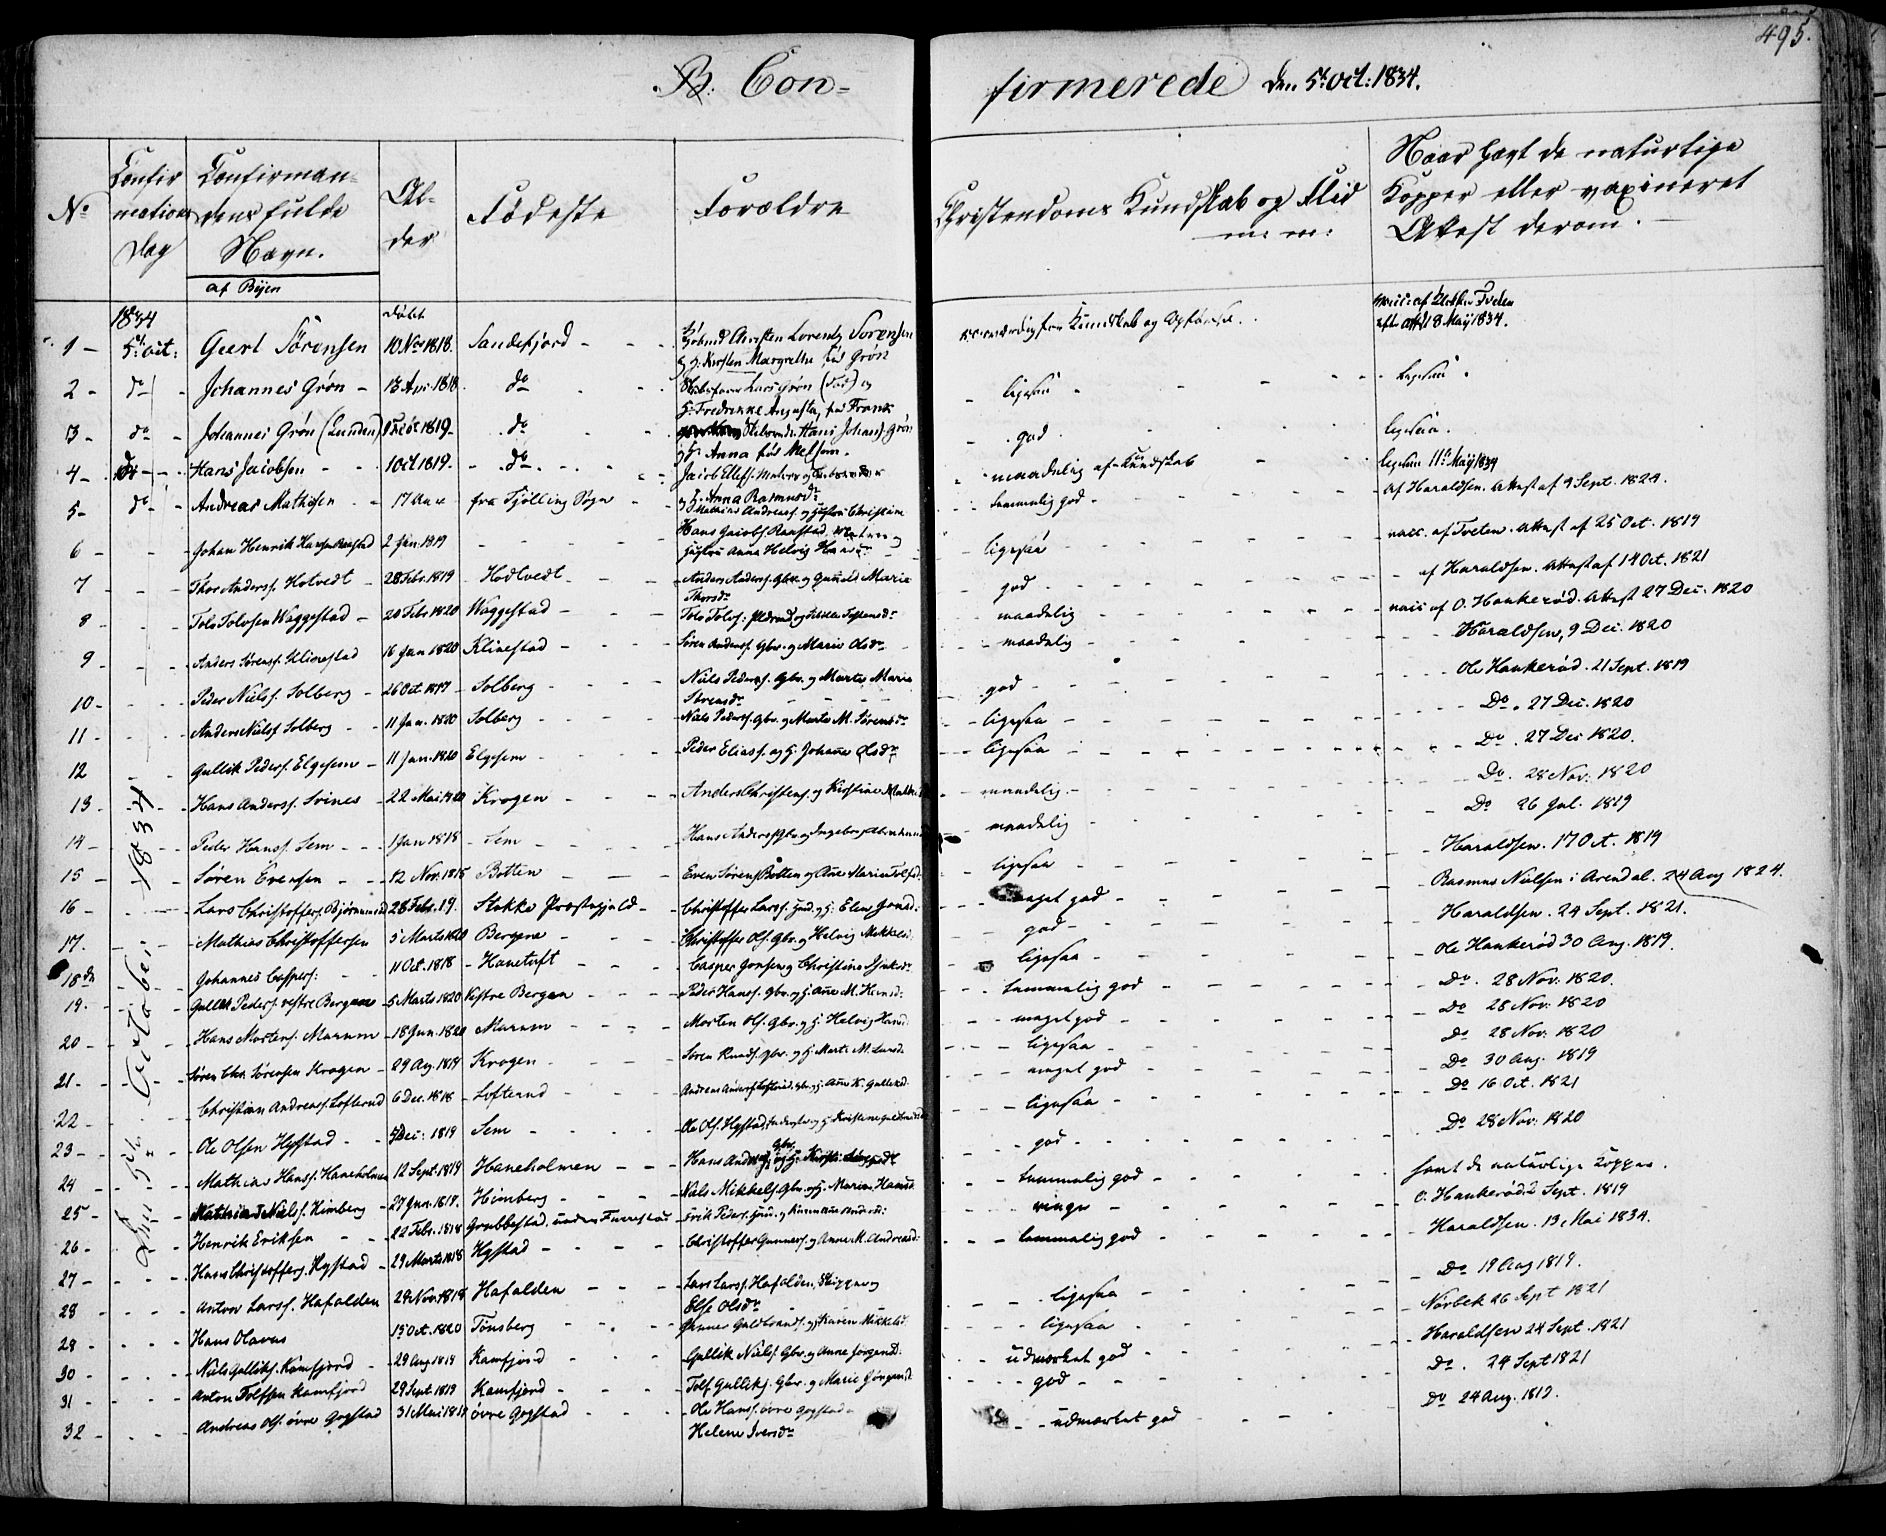 495.
B. Con-firmerede den 5t Oct: 1834.
No
Confirmations Dag
Confirmandens fulde Navn.
Alder
Fødested
Forældre
Christendoms Kundskab og Flid m: m:
Naar havt de naturlige Kopper eller vaxineret Attest derom.
af Byen
1834 døbt
1 - 5t Oct: Geert Sørensen 10 Nov 1818. Sandefjord - Christen Lorentz Sørensen
Margrethe fød Grøn Kundskab og Opførsel. 8 Maij 1834.
2 - do - Johannes Grøn - 13 Apr 1818. do Lars Grøn (død) og ligesaa ligesaa
H. Fredrikke Augusta, fød Frank
3 - do - Johannes Grøn (Lunden) 1819 - do Hans Johans. Grøn god ligesaa.
og H. Anna fød Melsom.
4 - do - Hans Jacobsen - 1 Oct 1819 - do Jacob Ellefs. maadelig af Kundskab ligesaa 11 Maij 1834
og H. Anna Rasmusdr
5 - do Andreas Mathisen - 17 Aar fra Tjølling Sogn Mathias Andreass. og Hustru Christine temmelig god - af Haraldsen. Attest af 9 Sept. 1824.
6 - Johan Henrik Hansen Raastad 2 Jan 1819 Hans Jacobs. Raastad, Matros og
Hustru Anna Helvig Hansdr ligesaa vacc. af Tveten. Attest af 25 Oct. 1819
7 - Thor Anderss. Hotvedt - 28 Febr. 1819 - Hodtvedt - Anders Anderss. Gbr. og Gunild Marie
Thorsdr god - af Haraldsen. Attest af 14 Oct. 1821
8 - Tolv Tolvsen Waggestad - 20 Febr 1820 Waggestad - Tolv Tolvs. maadelig vacc af O. Haukerød. Attest 27 Dec. 1820
9 - Anders Sørens. Klinestad 16 Jan 1820 Klinestad - Søren Anderss. Gbr. og Marie Olsdr maadelig Haraldsen, 9 Dec. 1820
10 - Peder Niels. Solberg - 26 Oct 1817 - Solberg - Niels Peders. Gbr. og Marte Marie
Sørensdr god - Ole Haukerød. 21 Sept. 1819
11 - Anders Niels. Solberg - 11 Jan. 1820 Solberg - Niels Peders. Gbr. og Marte M. Sørensdr ligesaa Do. 27 Dec. 1820
12 Gullik Peders. Elgesem - 11 Jan. 1820 Elgesem - Peder Elias. og H. Johanne Olsdr ligesaa Do. 27 Dec 1820.
13 - Hans Anders. Svines - 22 Mai 1820 Krogen - Anders Christens. og Kirstine maadelig - Do. 28 Nov. 1820
14 - Peder Hans. Sem - 1 Jan 1818 - Sem Hans Anders. Gbr. og Ingebor maadelig Do 26 Jul. 1819
15 - Søren Evensen - 12 Nov. 1815 Botten - Even Sørens. Botten og Ane Marie ligesaa Haraldsen. 17 Oct. 1819
16 - Lars Christoffers. 28 Febr. 19. Stokke Præstegjeld - Christoffer Lars. og H. Elen meget god - Rasmus Nielsen i Arendal. 24 Aug 1824.
17. Mathias Christoffersen 5 Marts 1820 Bergene - Christoffer Ols. Gbr. og Helvig Mikkelsd. god - Haraldsen. 24 Sept. 1821.
18 Johannes Caspers: 11 Oct. 1818 - Hanetuft - Casper Jonsen og Christine ligesaa - Ole Haukerød 30 Aug. 1819.
19. Gullik Peders. vestre Bergene 5 Marts 1820 Vestre Bergen Peder Hans. Gbr. og H. Ane M. temmelig god Do. 28 Nov. 1820.
20 - Hans Mortens. Marum - 18 Jun. 1820 Marum - Morten Ols. Gbr. og H. Helvig Hansd. meget god - Do 28 Nov. 1820
21 - Søren Chr. Sørensen Krogen - 29 Aug. 1819 Krogen - Søren Knuds. Gbr. og H. Marte M. Larsd. ligesaa Do 28 Nov. 1820
22 - Christian Andreas. Lofterud 6 Dec. 1818 - Lofterud - Andreas Anders. og H. Ane K. Gulliksd. meget god Do 30 Aug. 1819
23 - Ole Olsen Hystad - Dec: 1819 Sem - Ole Ols. Hystad, ligesaa Do 16 Oct. 1821
24 - Mathias Hans. Haneholmen 12 Sept. 1819 Haneholmen - Hans god - Do 28 Nov. 1820
25 - Mathias Niels. Himberg - 27 Jun. 1819. Himberg - Niels Mikkels. Gbr. og H. Maren Hansd. temmelig god - havt de naturlige Kopper.
26 - Henrik Eriksen 22 Febr. 1818 Grubbestad, Erik Peders. ringe - O. Haukerød 2 Sept. 1819
27 - Hans Christoffers. Hystad - 29 Marts 1818 Hystad - Christoffer Gunners. og Anne M. Andreasd. temmelig god Haraldsen. 13 Mai 1834.
28 Anton Lars. Hafalden 28 Nov. 1818 Hafalden - Lars Lars. Hafalden, Skipper og
Else Olsdr ligesaa Do 19 Aug 1819.
28 - Hans Olavus 15 Oct. 1820 Tønsberg - Gunner Guldbrands. og Karen Mikkelsd. ligesaa Nørbek 26 Sept 1821
30 - Niels Gulliks. Kamfjord - 29 Aug 1819 Kamfjord - Gullik Niels. Gbr. og Anne Jørgensd. udmærket god - Haraldsen 24 Sept. 1821
31 - Anton Tolfsen Kamfjord 29 Sept 1819 Kamfjord - Tolf Gulliks. Gbr. og Marie Jørgensd. god - Do. 24 Sept 1821
32 - Andreas Ols. øvre Gogstad 31 Mai 1818 øvre Gogstad - Ole Hans. øvre Gogstad -
Helene Iversdr udmærket god Do 24 Aug. 1819.
Den 5te October 1834